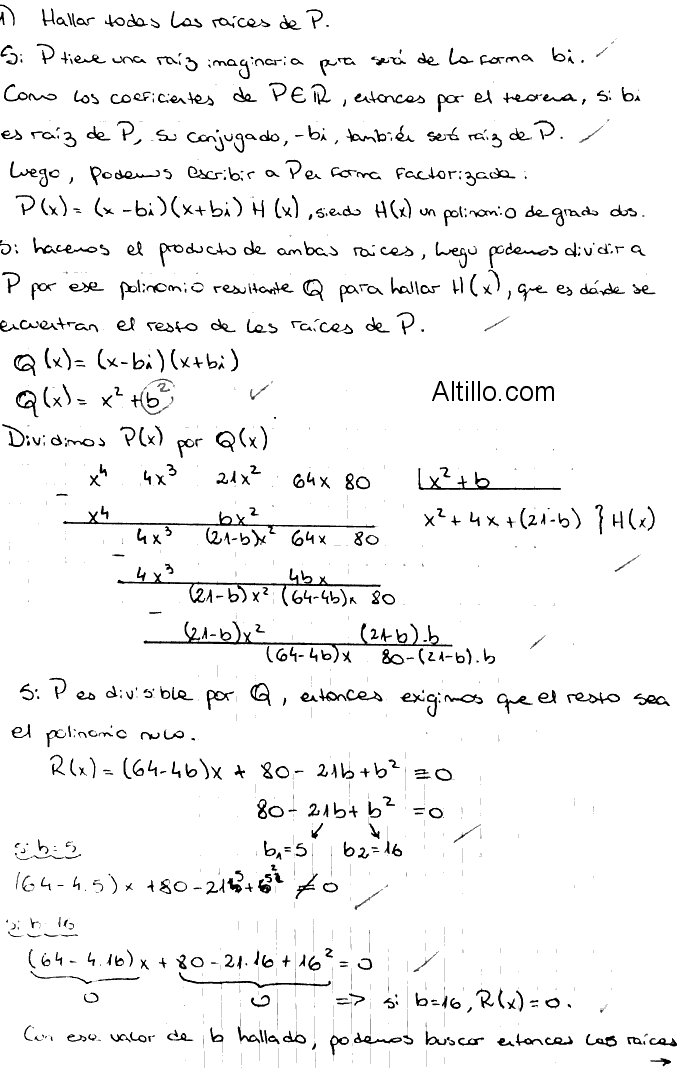 1) Hallar todas las raíces de P.
Si P tiene una raíz imaginaria pura será de la forma bi.
Como los coeficientes de P∈ℝ, entonces por el teorema, si bi
es raíz de P, su conjugado, -bi, también será raíz de P.
Luego, podemos escribir a P en forma factorizada:
P(x) = (x-bi)(x+bi) H(x), siendo H(x) un polinomio de grado dos.
Si hacemos el producto de ambas raíces, luego podemos dividir a
P por ese polinomio resultante Q para hallar H(x), que es dónde se
encuentran el resto de las raíces de P.
Q(x) = (x-bi)(x+bi)
Q(x) = x² + b²
Altillo.com
Dividimos P(x) por Q(x)
x⁴ 4x³ 21x² 64x 80 | x² + b
- x⁴ bx² x² + 4x + (21-b) } H(x)
4x³ (21-b)x² 64x 80
- 4x³ 4bx
(21-b)x² (64-4b)x 80
- (21-b)x² (21-b).b
(64-4b)x 80-(21-b).b
Si P es divisible por Q, entonces exigimos que el resto sea
el polinomio nulo.
R(x) = (64-4b)x + 80 - 21b + b² ≡ 0
80 - 21b + b² = 0
si b=5 b₁=5 b2=16
(64-4.5)x + 80 - 21 5 + 5² ≠ 0
si b=16
(64-4.16)x + 80 - 21.16 + 16² = 0
0 0 => si b=16, R(x)=0.
Con ese valor de b hallado, podemos buscar entonces las raíces
→